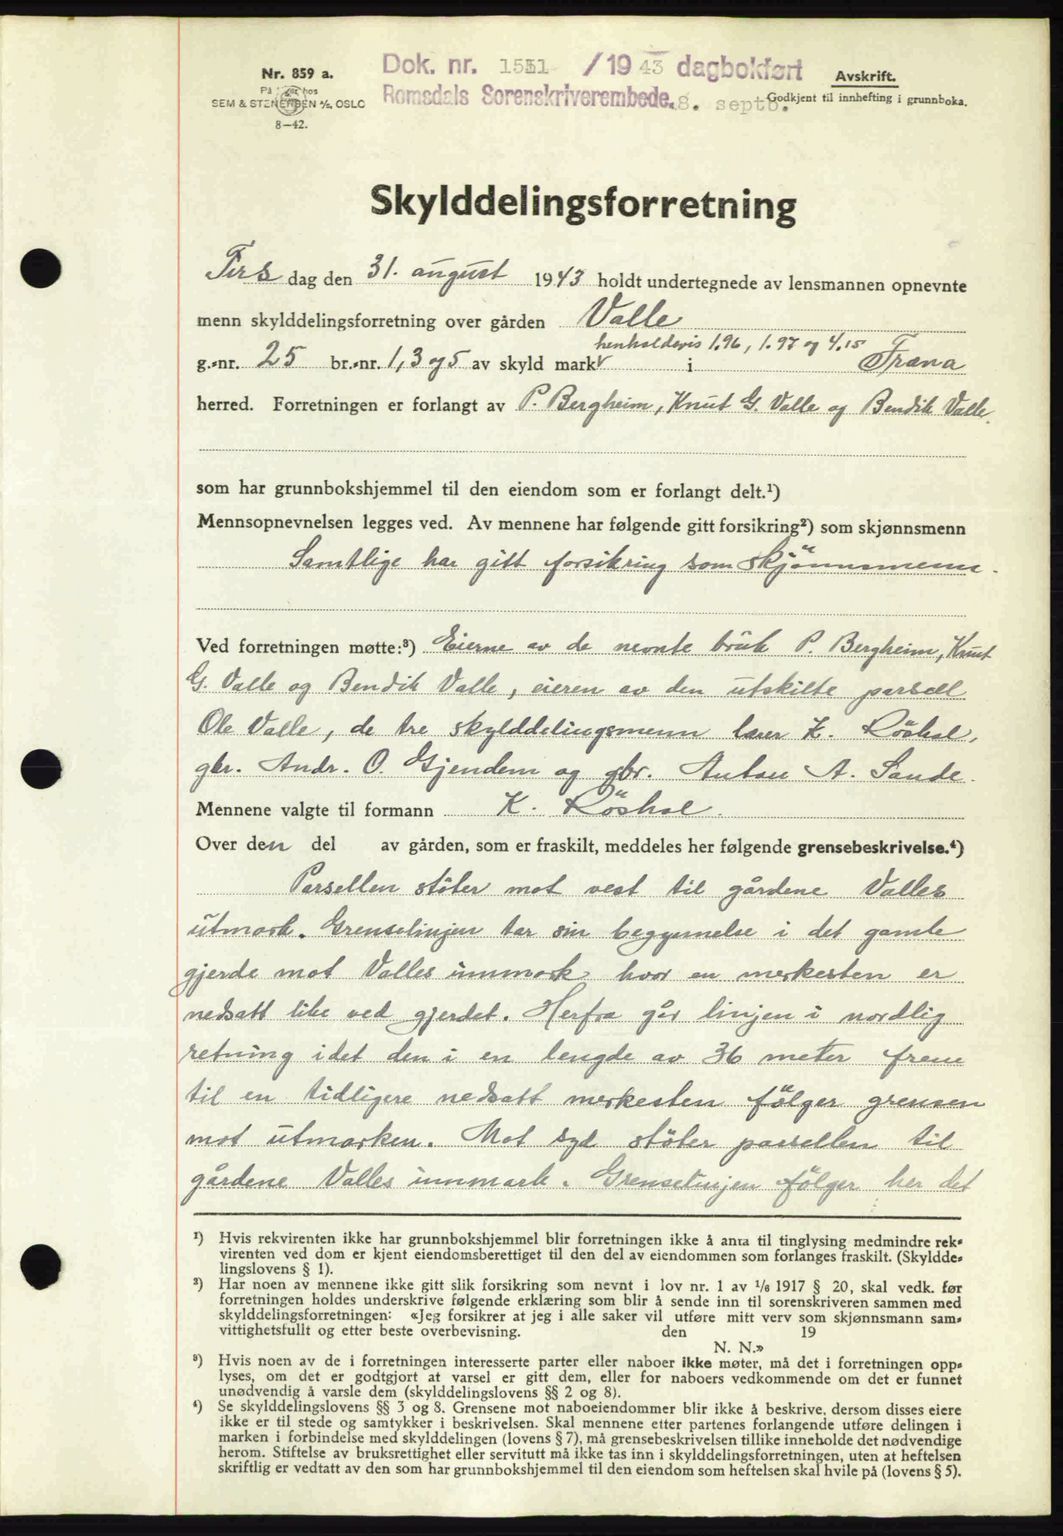 Nr. 859 a.
På lager hos
SEM & STENERSEN A/S, OSLO
8-42.
Dok. nr. 1531 /1943 dagbokført
Romsdals Sorenskriverembede. 8. septb.
Avskrift.
Godkjent til innhefting i grunnboka.
Skylddelingsforretning
Tirs dag den 31. august 1943 holdt undertegnede av lensmannen opnevnte
menn skylddelingsforretning over gården Valle
henholdsvis 1.96, 1.97 og 4.15
g.-nr. 25 br.-nr. 1, 3 og 5 av skyld mark i Fræna
herred. Forretningen er forlangt av P. Bergheim, Knut G. Valle og Bendik Valle.
som har grunnbokshjemmel til den eiendom som er forlangt delt.¹)
Mennsopnevnelsen legges ved. Av mennene har følgende gitt forsikring²) som skjønnsmenn
Samtlige har gitt forsikring som skjönnsmenn.
Ved forretningen møtte:³) Eierne av de nevnte bruk P. Bergheim, Knut
G. Valle og Bendik Valle, eieren av den utskilte parsell
Ole Valle, de tre skylddelingsmenn lærer K. Röshol,
gbr. Andr. O. Gjendem og gbr. Anton A. Sande.
Mennene valgte til formann K. Röshol.
Over den del av gården, som er fraskilt, meddeles her følgende grensebeskrivelse.⁴)
Parsellen stöter mot vest til gårdene Valles
utmark. Grenselinjen tar sin begynnelse i det gamle
gjerde mot Valles innmark hvor en merkesten er
nedsatt like ved gjerdet. Herfra går linjen i nordlig
retning idet den i en lengde av 36 meter frem
til en tidligere nedsatt merkesten fölger grensen
mot utmarken. Mot syd stöter parsellen til
gårdene Valles innmark. Grenselinjen fölger her det
¹) Hvis rekvirenten ikke har grunnbokshjemmel blir forretningen ikke å anta til tinglysing medmindre rek-
virenten ved dom er kjent eiendomsberettiget til den del av eiendommen som forlanges fraskilt. (Skyldde-
lingslovens § 1).
²) Har noen av mennene ikke gitt slik forsikring som nevnt i lov nr. 1 av 1/6 1917 § 20, skal vedk. før
forretningen holdes underskrive følgende erklæring som blir å sende inn til sorenskriveren sammen med
skylddelingsforretningen: «Jeg forsikrer at jeg i alle saker vil utføre mitt verv som skjønnsmann sam-
vittighetsfullt og etter beste overbevisning. den 19
N. N.»
³) Hvis noen av de i forretningen interesserte parter eller naboer ikke møter, må det i forretningen opp-
lyses, om det er godtgjort at varsel er gitt dem, eller for naboers vedkommende om det er funnet
unødvendig å varsle dem (skylddelingslovens §§ 2 og 8).
⁴) Se skylddelingslovens §§ 3 og 8. Grensene mot naboeiendommer blir ikke å beskrive, dersom disses eiere
ikke er til stede og samtykker i beskrivelsen. Skal mennene etter partenes forlangende utføre delingen i
marken i forbindelse med skylddelingen (lovens § 7), må grensebeskrivelsen tillike inneholde det nødvendige
herom. Stiftelse av bruksrettighet eller servitutt må ikke tas inn i skylddelingsforretningen, uten at heftelsen
skriftlig er vedtatt av den som har grunnbokshjemmel til den eiendom som heftelsen skal hvile på (lovens § 5).